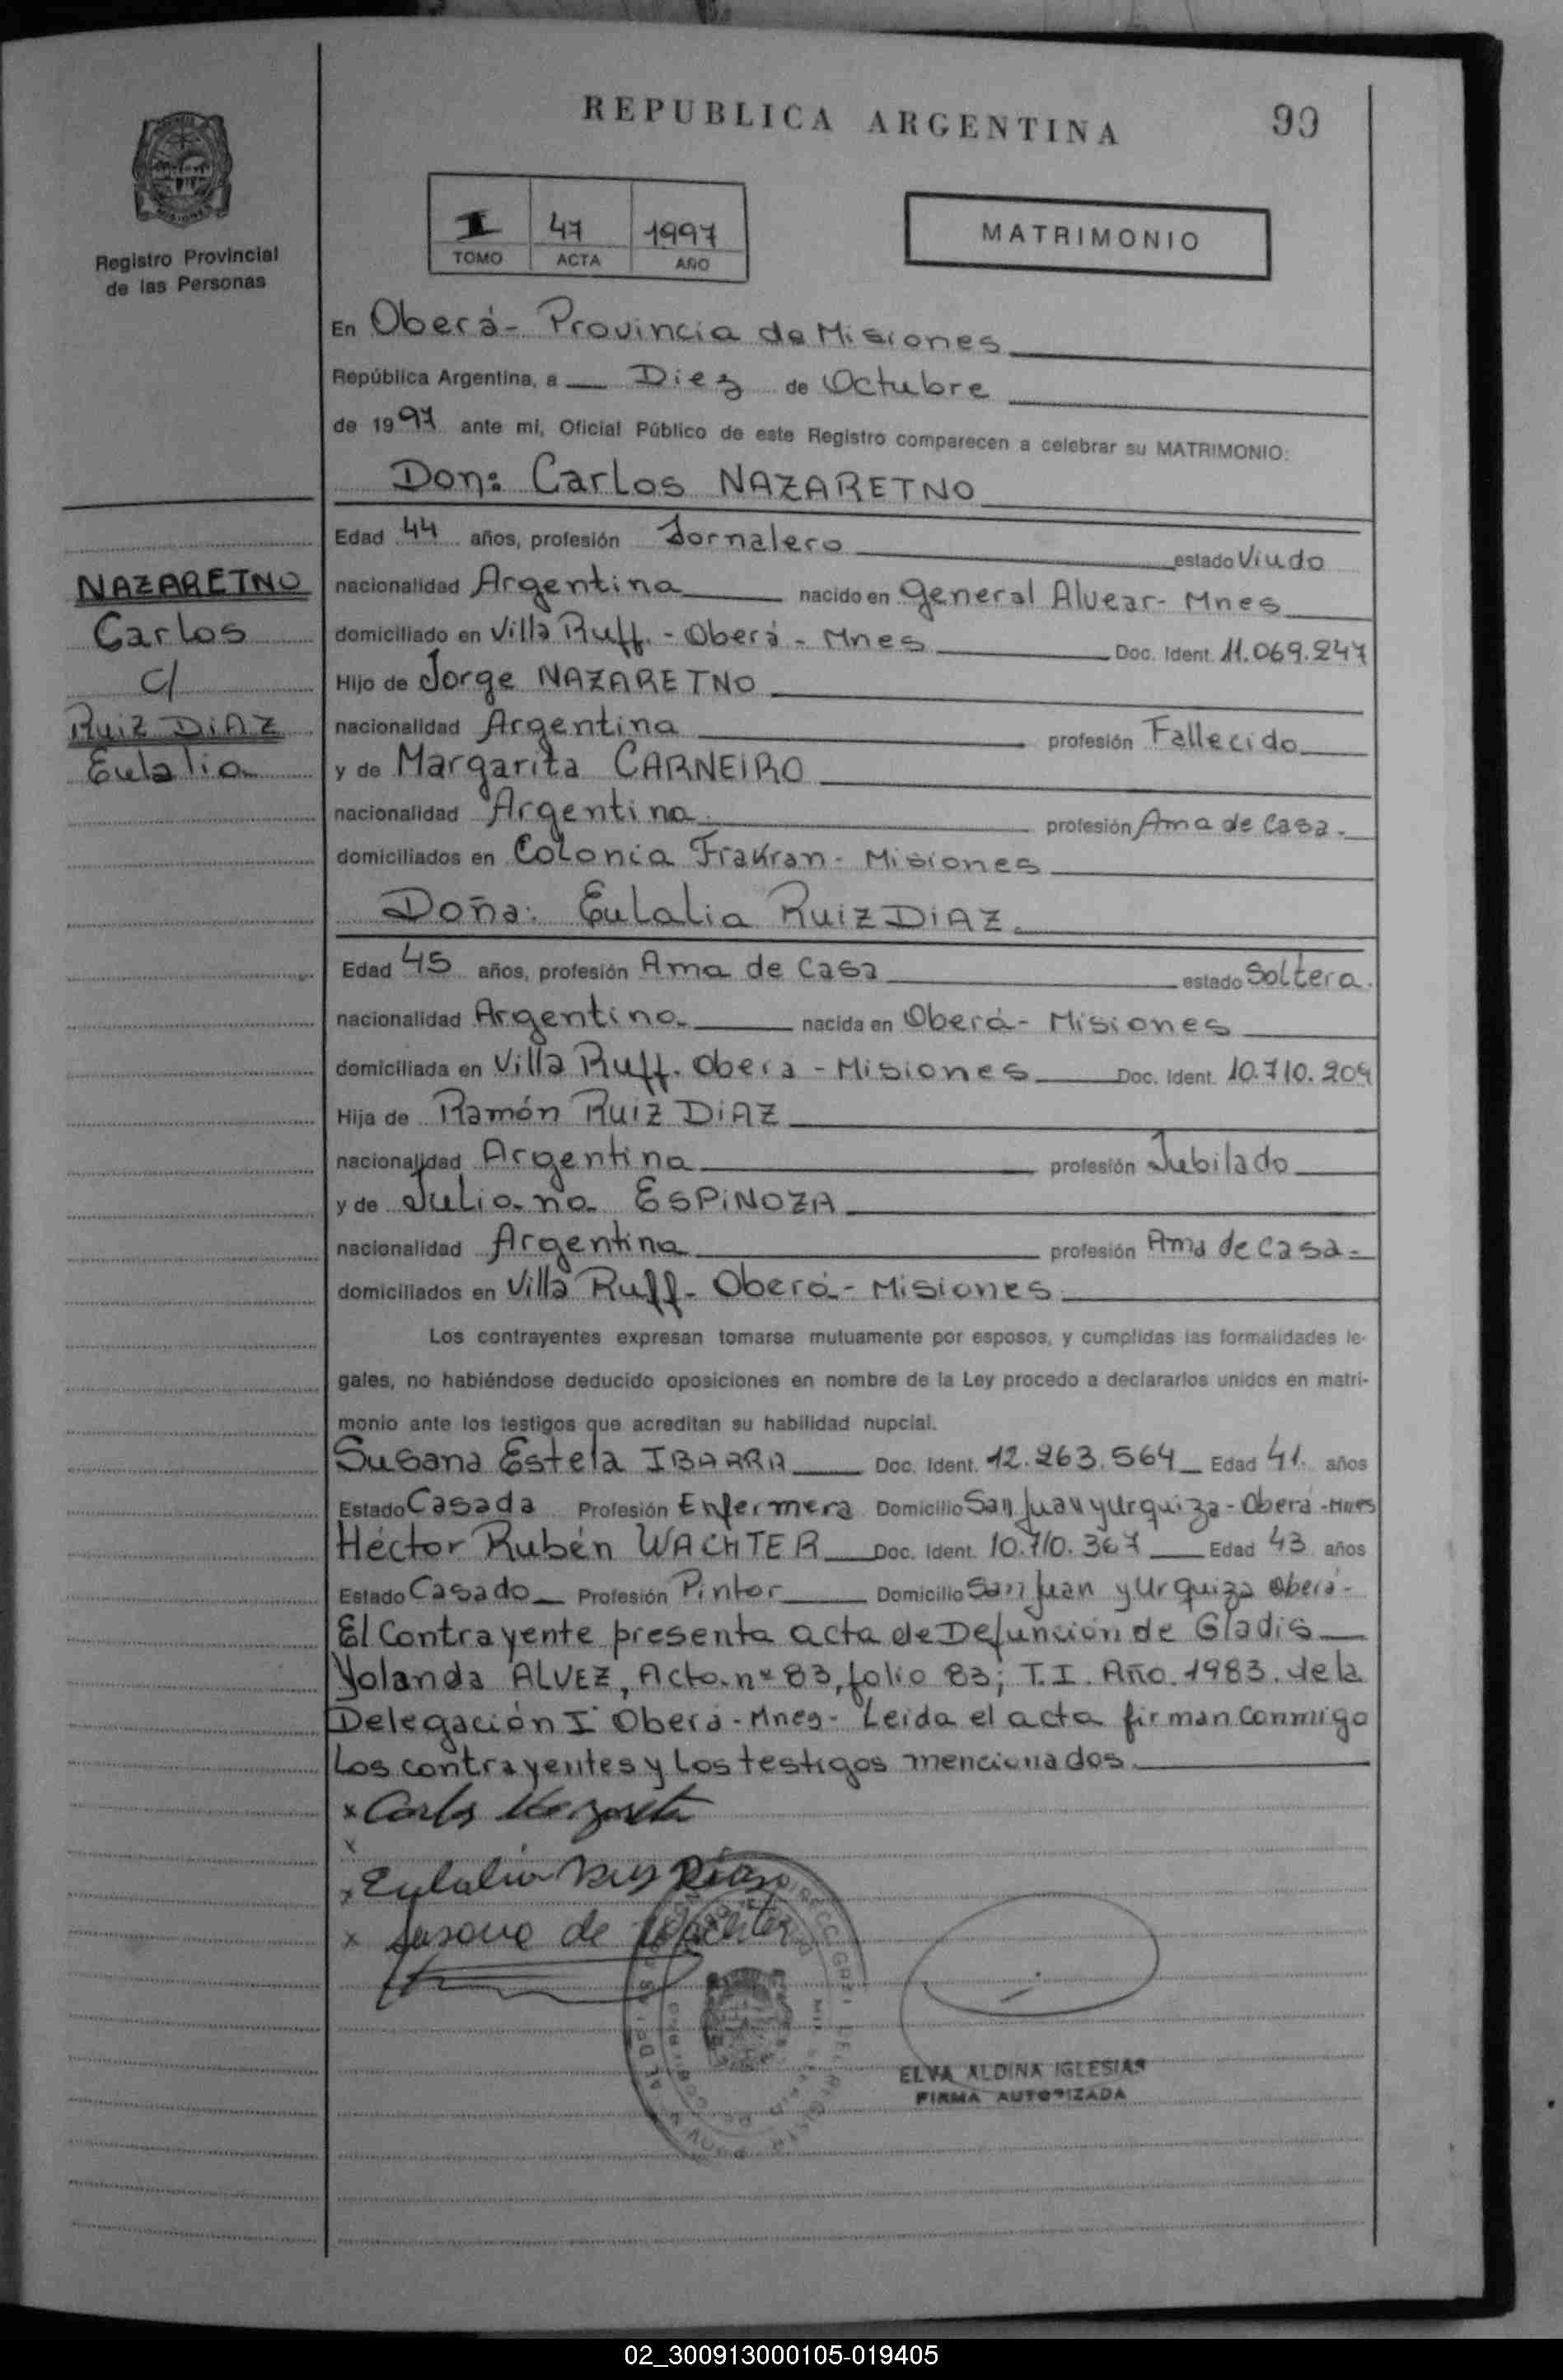 REPUBLICA ARGENTINA
99
Registro Provincial
de las Personas
I 47 1997
TOMO ACTA AÑO
MATRIMONIO
En Oberá- Provincia de Misiones
República Argentina, a Diez de Octubre
de 1997 ante mí, Oficial Público de este Registro comparecen a celebrar su MATRIMONIO:
Don: Carlos NAZARETNO
Edad 44 años, profesión Jornalero estado Viudo
NAZARETNO
Carlos
c/
Ruiz DiAZ
Eulalia
nacionalidad Argentina nacido en General Alvear- Mnes
domiciliado en Villa Ruff. - Oberá - Mnes Doc. Ident. 11.069.247
Hijo de Jorge NAZARETNO
nacionalidad Argentina profesión Fallecido
y de Margarita CARNEIRO
nacionalidad Argentina profesión Ama de Casa.
domiciliados en Colonia Frakran- Misiones
Doña: Eulalia Ruiz DiAZ.
Edad 45 años, profesión Ama de Casa estado Soltera.
nacionalidad Argentina nacida en Oberá- Misiones
domiciliada en Villa Ruff. Obera - Misiones Doc. Ident. 10.710.209
Hija de Ramón Ruiz DiAZ
nacionalidad Argentina profesión Jubilado
y de Juliana ESPiNOZA
nacionalidad Argentina profesión Ama de Casa-
domiciliados en Villa Ruff- Oberá- Misiones
Los contrayentes expresan tomarse mutuamente por esposos, y cumplidas las formalidades le-
gales, no habiéndose deducido oposiciones en nombre de la Ley procedo a declararlos unidos en matri-
monio ante los testigos que acreditan su habilidad nupcial.
Susana Estela IBARRA Doc. Ident. 12.263.564 Edad 41. años
Estado Casada Profesión Enfermera Domicilio San Juan y Urquiza-Oberá-Mnes
Héctor Rubén WACHTER Doc. Ident. 10.710.367 Edad 43 años
Estado Casado Profesión Pintor Domicilio San Juan y Urquiza Oberá-
El Contrayente presenta acta de Defunción de Gladis
Yolanda ALVEZ, Acta nº 83, folio 83; T.I. Año 1983. de la
Delegación I Oberá-Mnes- Leida el acta firman conmigo
Los contrayentes y Los testigos mencionados.
x Carlos
x
x Eulalia Ruiz Diaz
x Susana de Wachter
ELVA ALDINA IGLESIAS
FIRMA AUTORIZADA
02_300913000105-019405